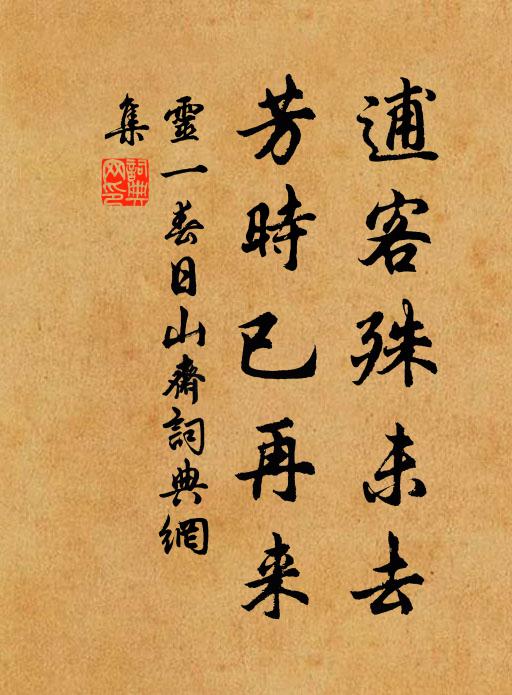 逋客殊未去
芳時已再来
靈一春日山齋詞典網
集
詞典
网印